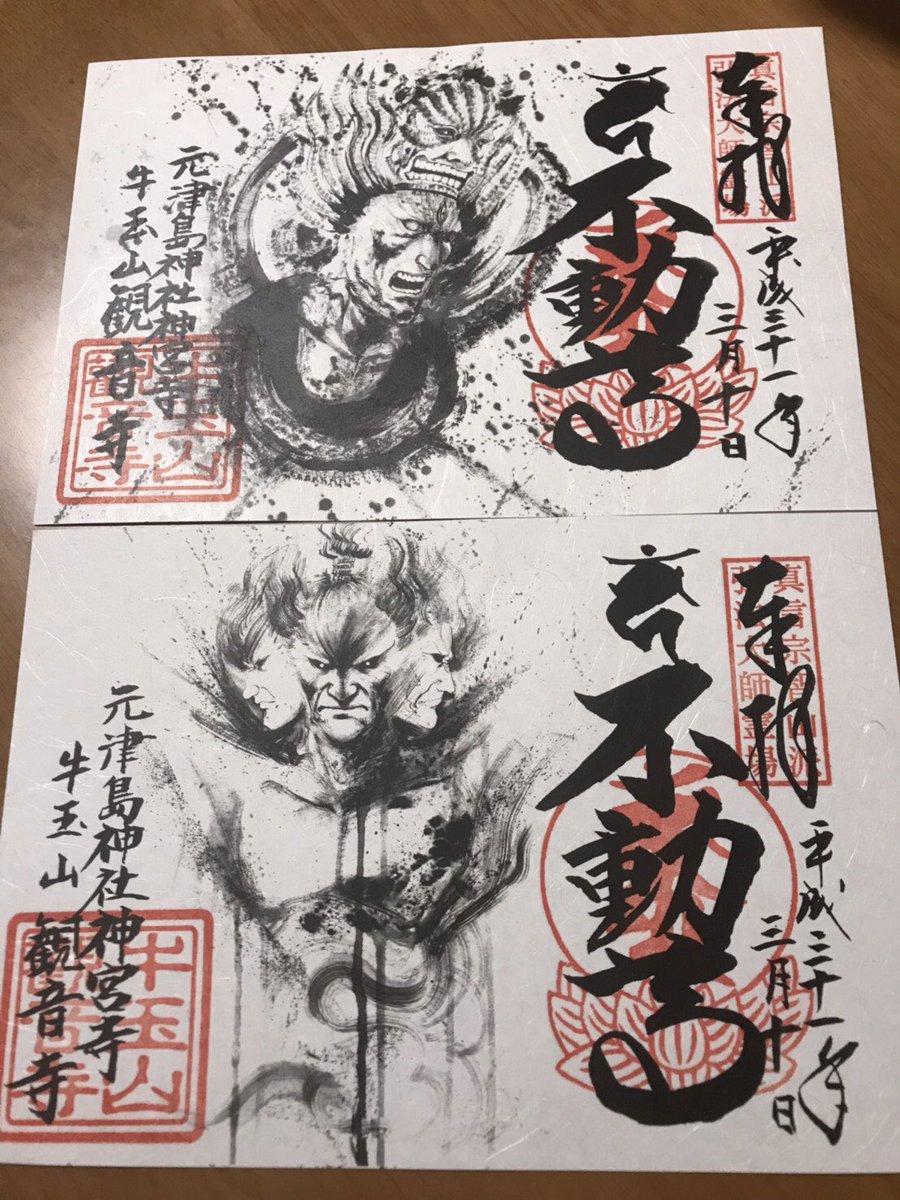 奉拝
真言宗智山派
弘法大師霊場
平成三十一年
三月十日
不動尊
元津島神社神宮寺
牛玉山観音寺
牛玉山
観音寺
奉拝
真言宗智山派
弘法大師霊場
平成三十一年
三月十日
不動尊
元津島神社神宮寺
牛玉山観音寺
牛玉山
観音寺